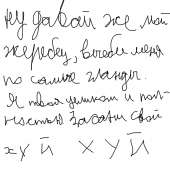 Ну давай же мой
жеребец, выеби меня
по самые гланды.
Я твоя целиком и пол-
ностью засади свой
хуй хуй